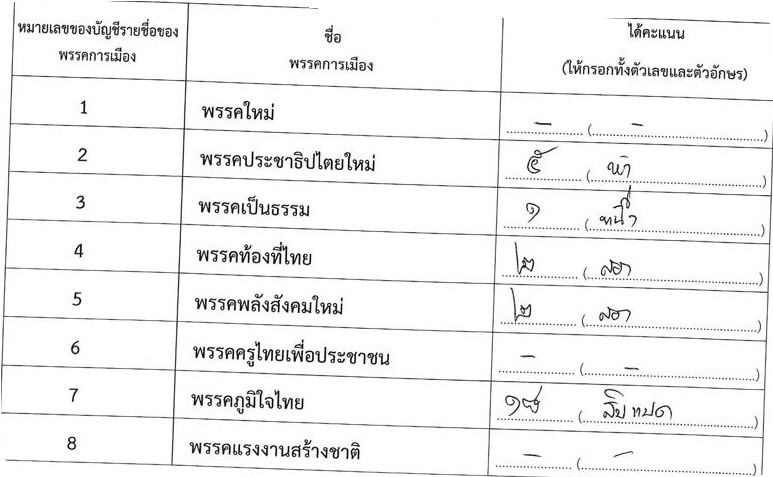 หมายเลขของบัญชีรายชื่อของพรรคการเมือง ชื่อพรรคการเมือง ได้คะแนน (ให้กรอกทั้งตัวเลขและตัวอักษร)
1 พรรคใหม่ - (-)
2 พรรคประชาธิปไตยใหม่ ๕ (ห้า)
3 พรรคเป็นธรรม ๑ (หนึ่ง)
4 พรรคท้องที่ไทย ๒ (สอง)
5 พรรคพลังสังคมใหม่ ๒ (สอง)
6 พรรคครูไทยเพื่อประชาชน - (-)
7 พรรคภูมิใจไทย ๑๘ (สิบแปด)
8 พรรคแรงงานสร้างชาติ - (-)